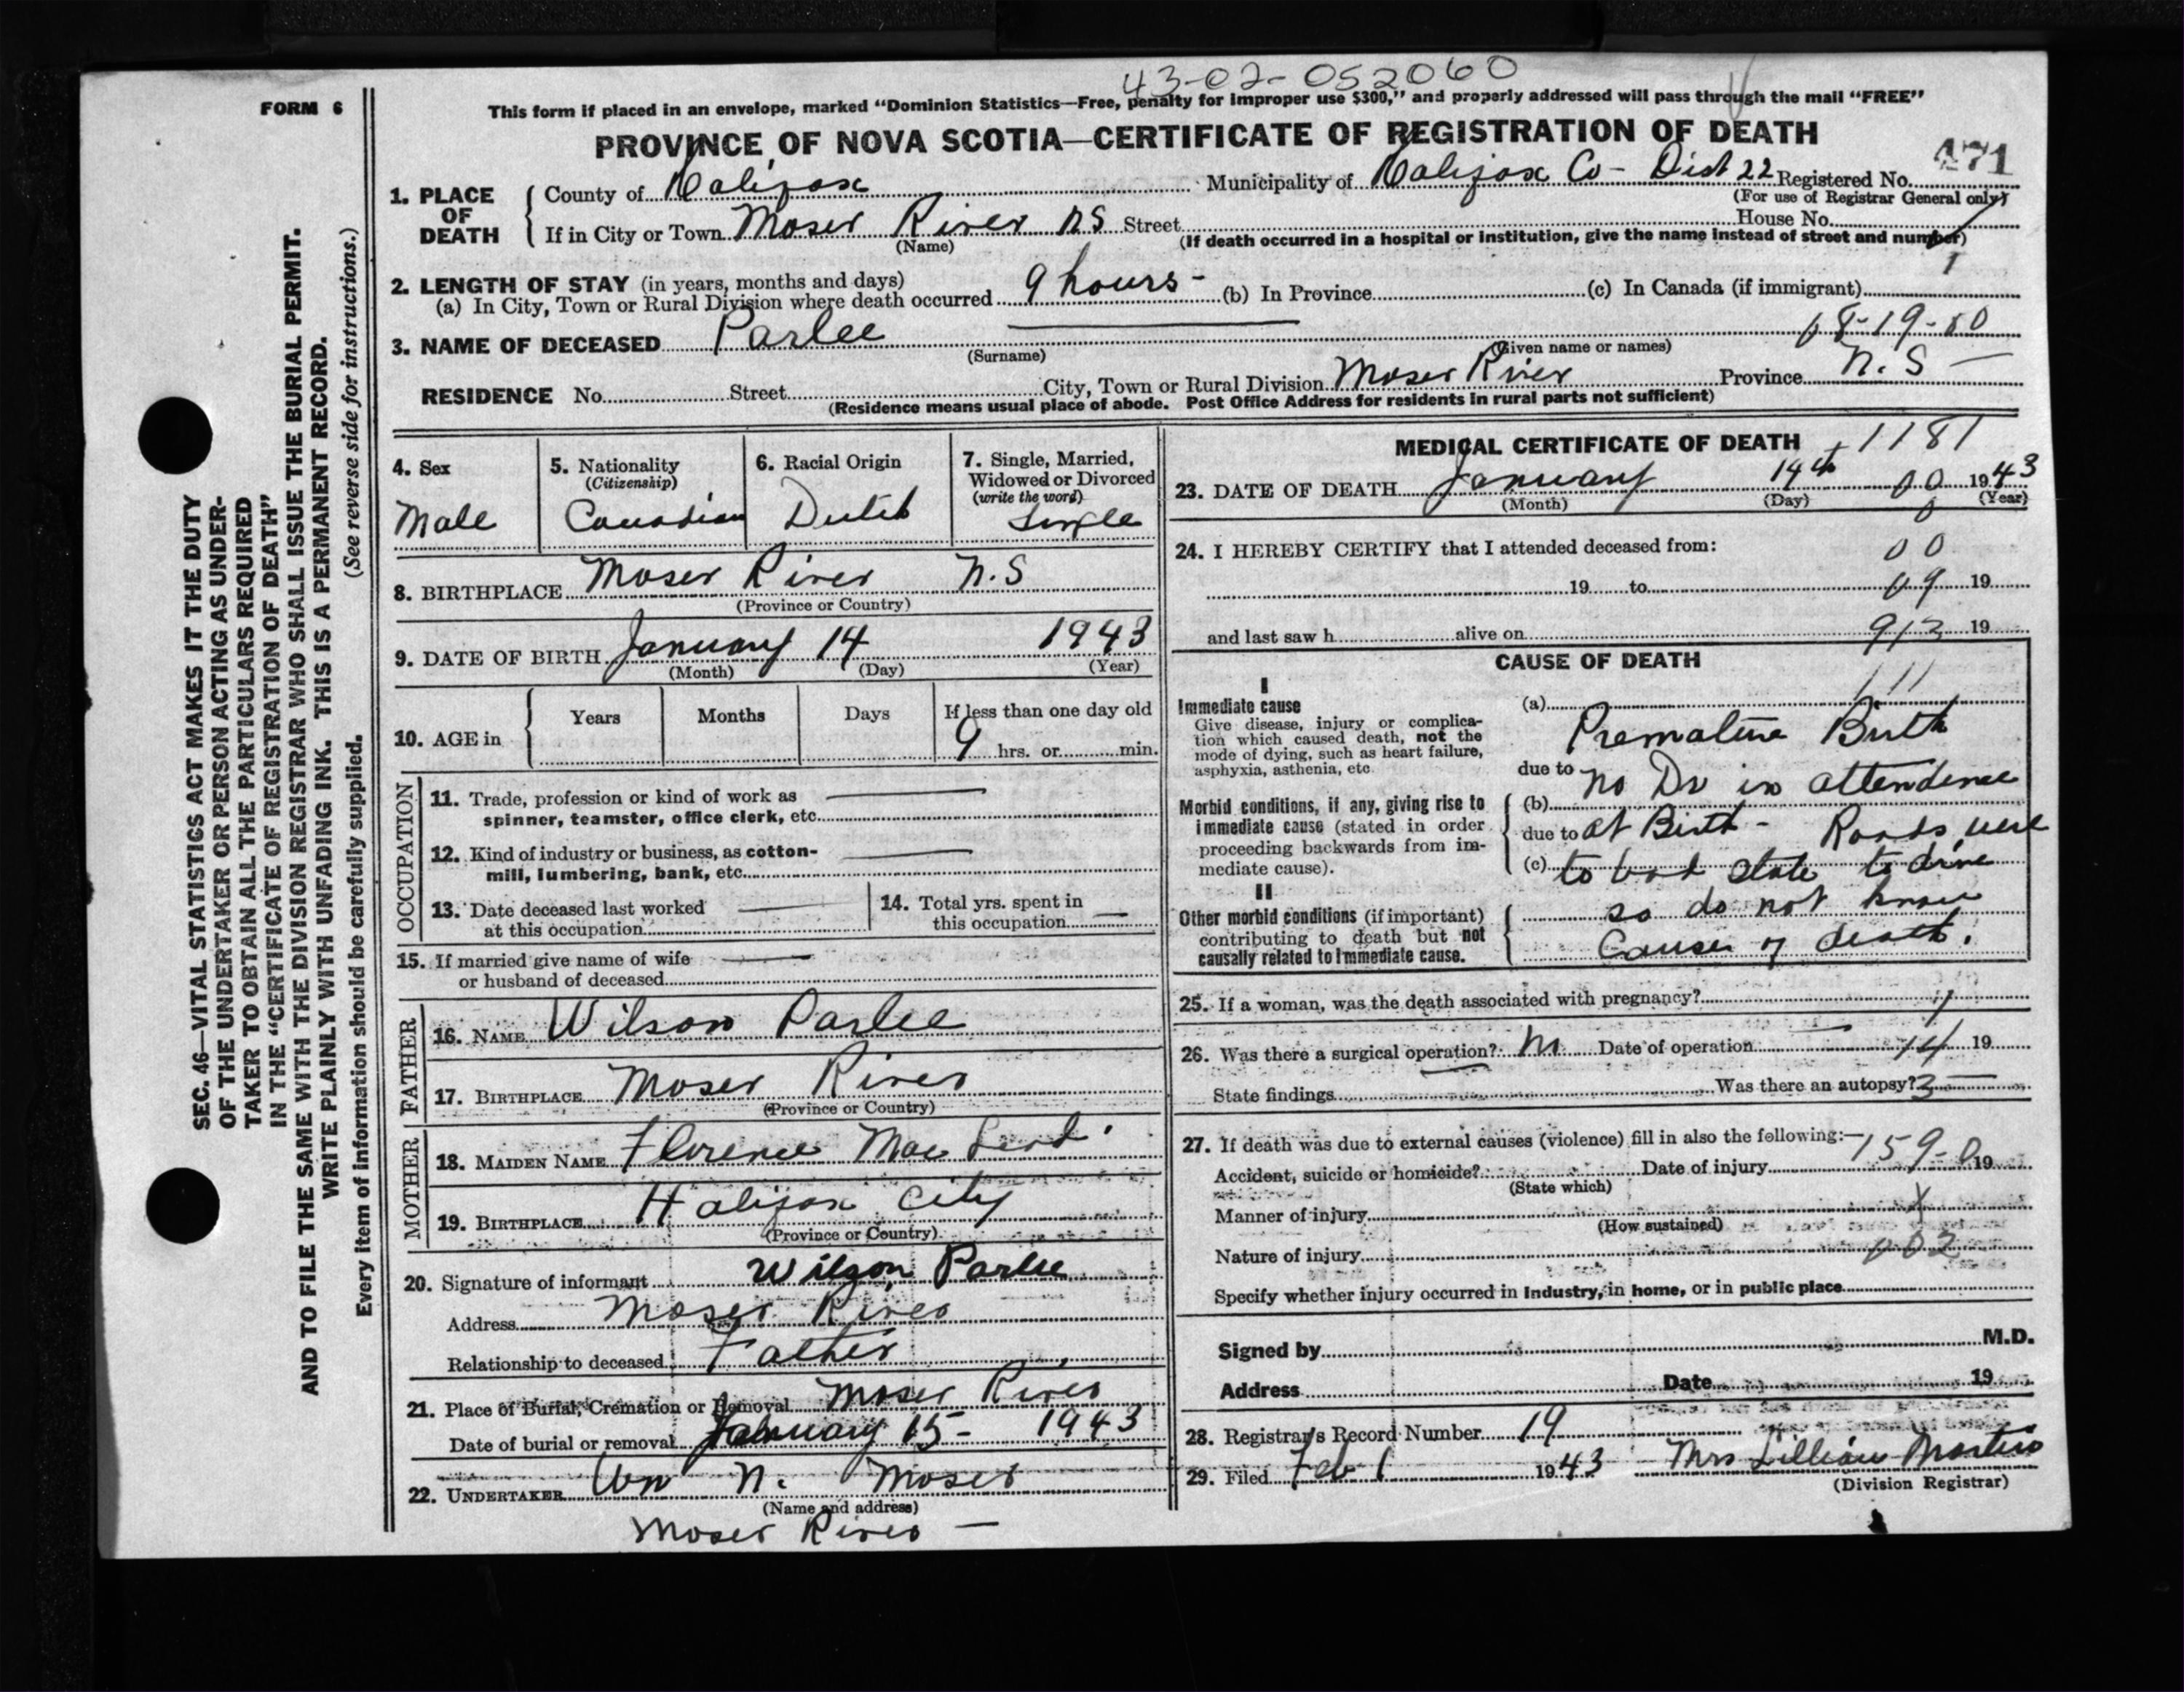 43-02-052060
FORM 6
This form if placed in an envelope, marked "Dominion Statistics—Free, penalty for improper use $300," and properly addressed will pass through the mail "FREE"
PROVINCE OF NOVA SCOTIA—CERTIFICATE OF REGISTRATION OF DEATH
471
1. PLACE OF DEATH
County of Halifax Municipality of Halifax Co - Dist 22 Registered No.
(For use of Registrar General only)
If in City or Town Moser River N S Street House No.
(Name) (If death occurred in a hospital or institution, give the name instead of street and number)
1
2. LENGTH OF STAY (in years, months and days)
(a) In City, Town or Rural Division where death occurred 9 hours - (b) In Province (c) In Canada (if immigrant)
3. NAME OF DECEASED Parlee
(Surname) (Given name or names)
RESIDENCE No. Street City, Town or Rural Division Moser River Province N. S —
(Residence means usual place of abode. Post Office Address for residents in rural parts not sufficient)
4. Sex
Male
5. Nationality
(Citizenship)
Canadian
6. Racial Origin
Dutch
7. Single, Married, Widowed or Divorced
(write the word)
Single
8. BIRTHPLACE Moser River N.S
(Province or Country)
9. DATE OF BIRTH January 14 1943
(Month) (Day) (Year)
10. AGE in Years Months Days If less than one day old
9 hrs. or min.
OCCUPATION
11. Trade, profession or kind of work as
spinner, teamster, office clerk, etc.
12. Kind of industry or business, as cotton-
mill, lumbering, bank, etc.
13. Date deceased last worked
at this occupation
14. Total yrs. spent in
this occupation
15. If married give name of wife
or husband of deceased
FATHER
16. NAME Wilson Parlee
17. BIRTHPLACE Moser River
(Province or Country)
MOTHER
18. MAIDEN NAME Florence Mac
19. BIRTHPLACE Halifax City
(Province or Country)
20. Signature of informant Wilson Parlee
Address Moser River
Relationship to deceased Father
21. Place of Burial, Cremation or Removal Moser River
Date of burial or removal January 15 - 1943
22. UNDERTAKER Wm N. Moser
(Name and address)
Moser River —
MEDICAL CERTIFICATE OF DEATH
1181
23. DATE OF DEATH January 14th 1943
(Month) (Day) (Year)
00
24. I HEREBY CERTIFY that I attended deceased from:
00
19 to 19
and last saw h alive on 19
CAUSE OF DEATH
111
I
Immediate cause
Give disease, injury or complica-
tion which caused death, not the
mode of dying, such as heart failure,
asphyxia, asthenia, etc.
(a) Premature Birth
due to
Morbid conditions, if any, giving rise to
immediate cause (stated in order
proceeding backwards from im-
mediate cause).
(b) no Dr in attendence
due to at Birth - Roads were
(c) to bad state to drive
II
Other morbid conditions (if important)
contributing to death but not
causally related to immediate cause.
so do not know
Cause of death.
25. If a woman, was the death associated with pregnancy?
1
26. Was there a surgical operation? No Date of operation 14 19
State findings Was there an autopsy? 3
27. If death was due to external causes (violence) fill in also the following:—
159-0
Accident, suicide or homicide? Date of injury 19
(State which)
Manner of injury
(How sustained)
Nature of injury
Specify whether injury occurred in industry, in home, or in public place
Signed by M.D.
Address Date 19
28. Registrar's Record Number 19
29. Filed Feb 1 1943 Mrs Lillian Martin
(Division Registrar)
SEC. 46—VITAL STATISTICS ACT MAKES IT THE DUTY
OF THE UNDERTAKER OR PERSON ACTING AS UNDER-
TAKER TO OBTAIN ALL THE PARTICULARS REQUIRED
IN THE "CERTIFICATE OF REGISTRATION OF DEATH"
AND TO FILE THE SAME WITH THE DIVISION REGISTRAR WHO SHALL ISSUE THE BURIAL PERMIT.
WRITE PLAINLY WITH UNFADING INK. THIS IS A PERMANENT RECORD.
Every item of information should be carefully supplied. (See reverse side for instructions.)